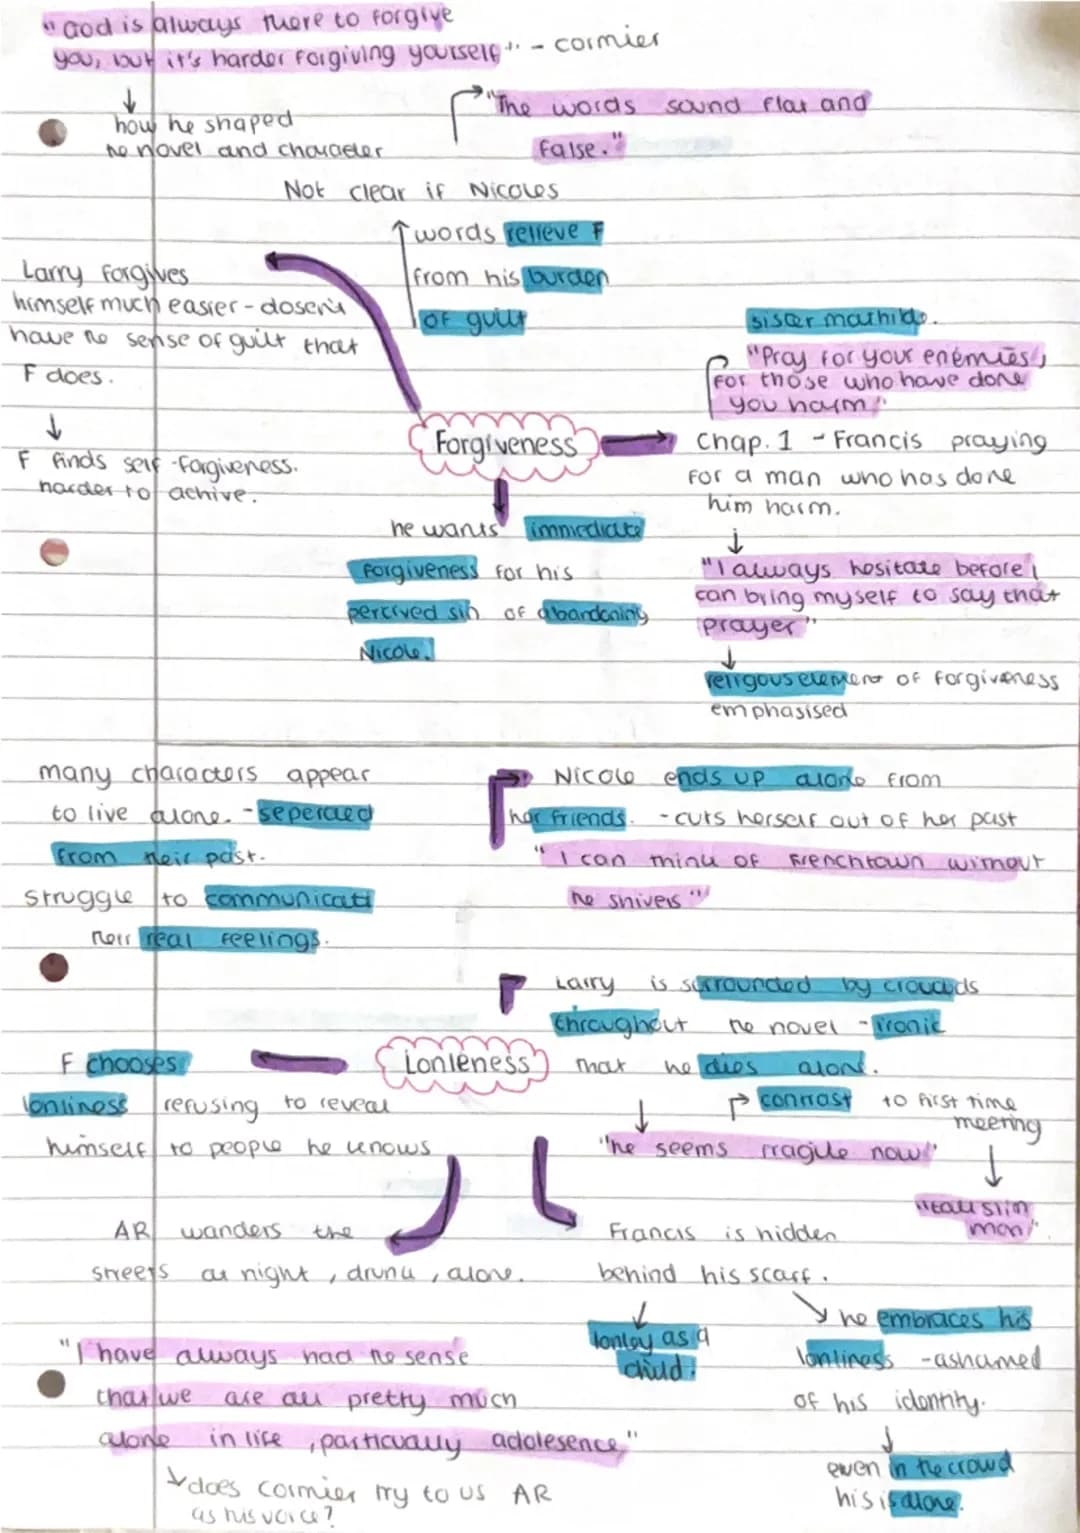 "God is always there to forgive
you, but it's harder forgiving yourself". - cormier
how he shaped
the novel and character
"The words sound flat and
false."
Not clear if Nicoles
words relieve F
from his burden
of guilt
Larry forgives
himself much easier - dosen't
have the sense of guilt that
F does.
F finds self-forgiveness.
harder to achive.
Forgiveness
sister mathilde.
"Pray for your enemies,
for those who have done
you harm"
Chap. 1 - Francis praying
for a man who has done
him harm.
"I always hesitate before I
can bring myself to say that
prayer"
religous element of forgiveness
emphasised
he wants immediate
forgiveness for his
percived sin of abandoning
Nicole.
many characters appear
to live alone. - seperated
from their past.
struggle to communicate
their real feelings.
Nicole ends up alone from
her friends. - cuts herself out of her past
"I can think of Frenchtown without
the shivers"
Larry is surrounded by crowds
throughout the novel - ironic
that he dies alone.
contrast to first time
meeting
"he seems fragile now"
"tall slim
man"
Lonleness
F chooses
lonliness refusing to reveal
himself to people he knows
AR wanders the
streets at night, drunk, alone.
Francis is hidden
behind his scarf.
lonley as a
child.
he embraces his
lonliness - ashamed
of his identity.
even in the crowd
his is alone.
"I have always had the sense
that we are all pretty much
alone in life, particually adolesence"
does cormier try to us AR
as his voice?